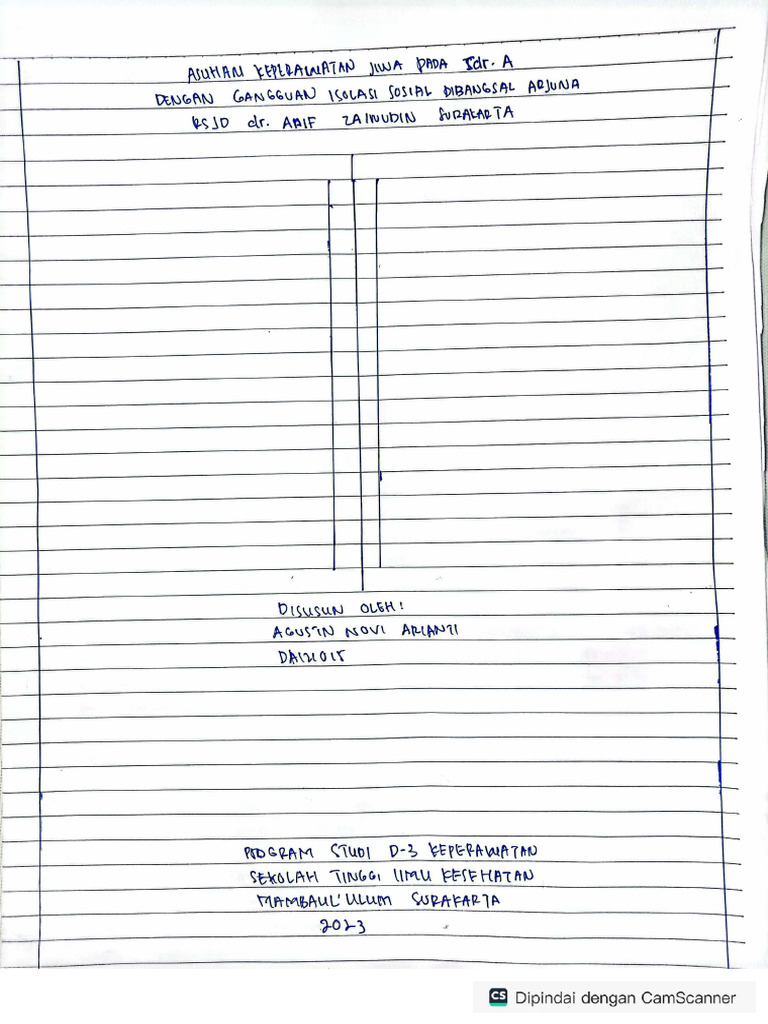 ASUHAN KEPERAWATAN JIWA PADA Sdr. A
DENGAN GANGGUAN ISOLASI SOSIAL DIBANGSAL ARJUNA
RSJD dr. ARIF ZAINUDIN SURAKARTA
DISUSUN OLEH :
AGUSTIN NOVI ARIANTI
PROGRAM STUDI D-3 KEPERAWATAN
SEKOLAH TINGGI ILMU KESEHATAN
MAMBAUL'ULUM SURAKARTA
2023
CS Dipindai dengan CamScanner